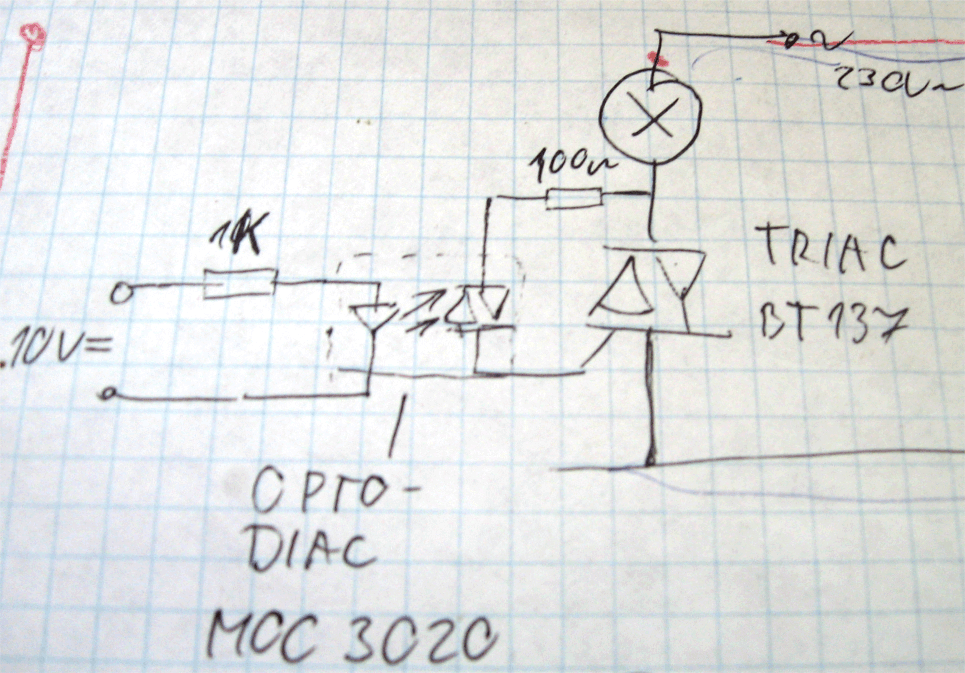 ~
230V~
100~
1K
TRIAC
BT137
.10V=
OPTO-
DIAC
MOC 3020